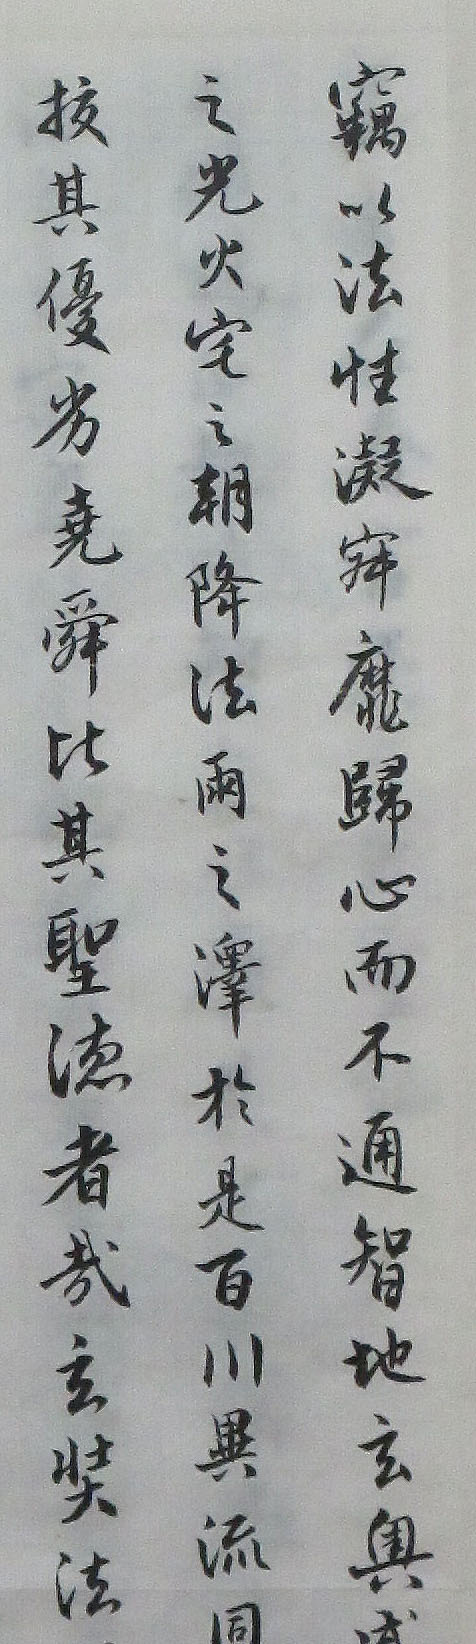 竊以法性凝寂靡歸心而不通智地玄奧感
之光火宅之朝降法雨之澤於是百川異流同
挍其優劣堯舜比其聖德者哉玄奘法